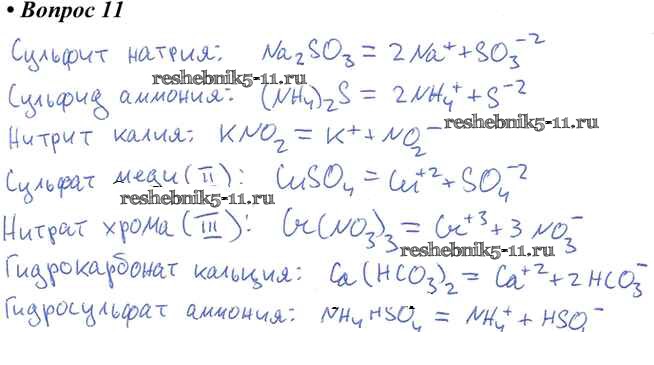 • Вопрос 11
Сульфит натрия: Na₂SO₃ = 2Na⁺ + SO₃⁻²
reshebnik5-11.ru
Сульфид аммония: (NH₄)₂S = 2NH₄⁺ + S⁻²
reshebnik5-11.ru
Нитрит калия: KNO₂ = K⁺ + NO₂⁻
Сульфат меди (II): CuSO₄ = Cu⁺² + SO₄⁻²
reshebnik5-11.ru
Нитрат хрома (III): Cr(NO₃)₃ = Cr⁺³ + 3NO₃⁻
reshebnik5-11.ru
Гидрокарбонат кальция: Ca(HCO₃)₂ = Ca⁺² + 2HCO₃⁻
Гидросульфат аммония: NH₄HSO₄ = NH₄⁺ + HSO₄⁻